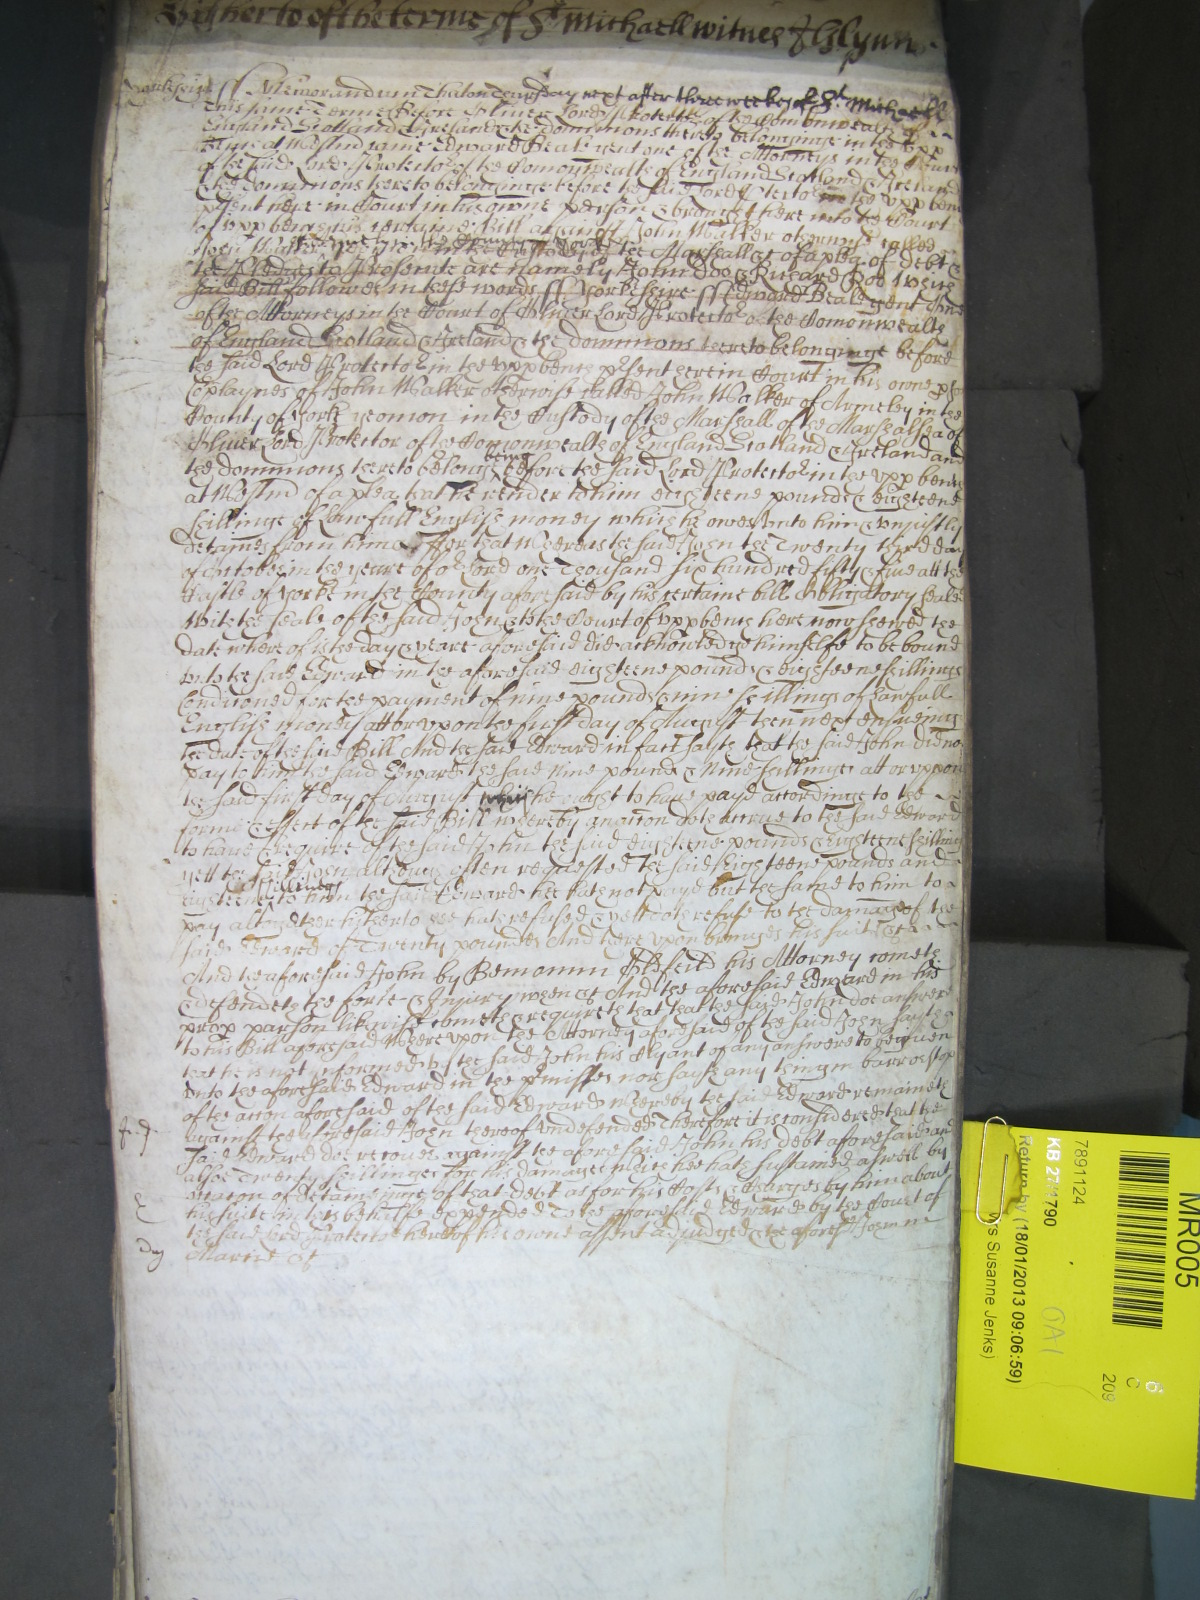 Hitherto of the terme of St Michaell witnes J Glynn
Yorkshire ss Memorandum That on Thursday next after three weekes of St Michaell
this same Terme Before Oliver Lord Protector of the Comonwealth of
England Scotland & Ireland & the dominions thereto belonginge in the upp
bench at Westmr came Edward Beale gent one of the Attorneys in the Court
of the said Lord Protector of the Comonwealth of England Scotland & Ireland
& the dominions thereto belonginge before the said Lord Protector in the upp bench
psent here in Court in his owne person & brought here into the Court
of upp bench his certaine Bill against John Walker otherwise called
John Walker in the Custody of the Marshall &c of a plea of debt &
the Pledges to Prosecute are namely John Doo & Richard Roo which
said Bill followes in these words ss Yorkeshire ss Edward Beale gent one
of the Attorneys in the Court of Oliver Lord Protector of the Comonwealth
of England Scotland & Ireland & the dominions thereto belonginge before
the said Lord Protector in the upp bench psent here in Court in his owne pson
Complaynes of John Walker otherwise called John Walker of Armeley in the
County of Yorke yeoman in the Custody of the Marshall of the Marshalsea of
Oliver Lord Protector of the Comonwealth of England Scotland & Ireland and
the dominions thereto belonging being before the said Lord Protector in the upp bench
at Westmr of a plea that he render to him eighteene pounds & eighteene
shillings of lawfull English money which he owes unto him & unjustly
detaines from him For that Whereas the said John the Twenty third day
of October in the yeare of or Lord one Thousand six hundred fifty & five att the
Castle of Yorke in the County aforesaid by his certaine bill Obligatory sealed
with the seale of the said John & to the Court of upp bench here now shewed the
date whereof is the day & yeare aforesaid did acknowledge himselfe to be bound
unto the said Edward in the aforesaid eighteene pounds & eighteene shillings
Conditioned for the payment of nine pounds & nine shillings of lawfull
English money att or upon the first day of August then next ensueing
the date of the said Bill And the said Edward in fact saith that the said John did not
pay to him the said Edward the said Nine pounds & Nine shillings att or uppon
the said first day of August which he ought to have payd accordinge to the
forme & effect of the said Bill whereby an accon doth accrue to the said Edward
to have & require of the said John the said eighteene pounds & eighteene shillings
yett the said John although often requested the said Eighteene pounds and
eighteene shillings to him the said Edward hee hath not payd but the same to him to
pay altogether hitherto hee hath refused & yett doth refuse to the damage of the
said Edward of Twenty pounds And hereupon bringes his suit &c
And the aforesaid John by Beniamin Oldfeild his Attorney cometh
& defendeth the force & Injury when &c And the aforesaid Edward in his
prop parson likewise cometh & requireth that that the said John doe answere
to his Bill aforesaid Whereupon the Attorney aforesaid of the said John saith
that he is not informed by the said John his Clyant of any answere to be given
unto the aforesaid Edward in the pmisses nor saith any thing in barr or stop
of the accon aforesaid of the said Edward whereby the said Edward remaineth
against the aforesaid John thereof undefended Therefore it is considered that the
said Edward doe recover against the aforesaid John his debt aforesaid and
alsoe Twenty shillings for his damages which hee hath sustained aswell by
occacon of detaineinge of that debt as for his Costs & Charges by him about
his suite in this behalfe expended To the aforesaid Edward by the Court of
the said Lord Protector here of his owne assent adjudged & the aforesd John in
Marcie &c
MR005
7891124
KB 27/1790
Return by (18/01/2013 09:06:59)
Susanne Jenks)
6
C
209
OA1